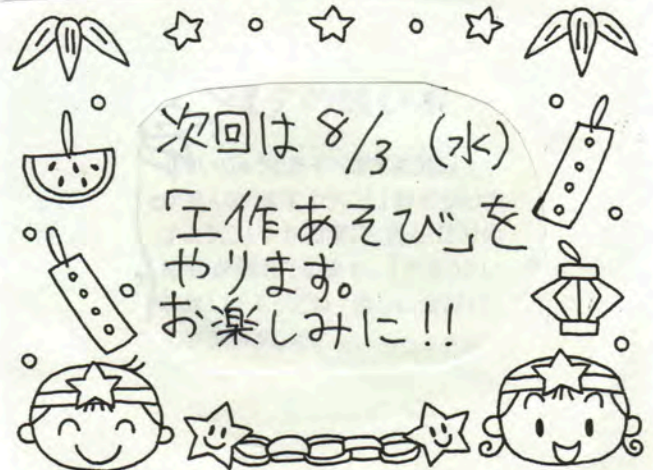 次回は 8/3 (水)
「工作あそび」を
やります。
お楽しみに!!